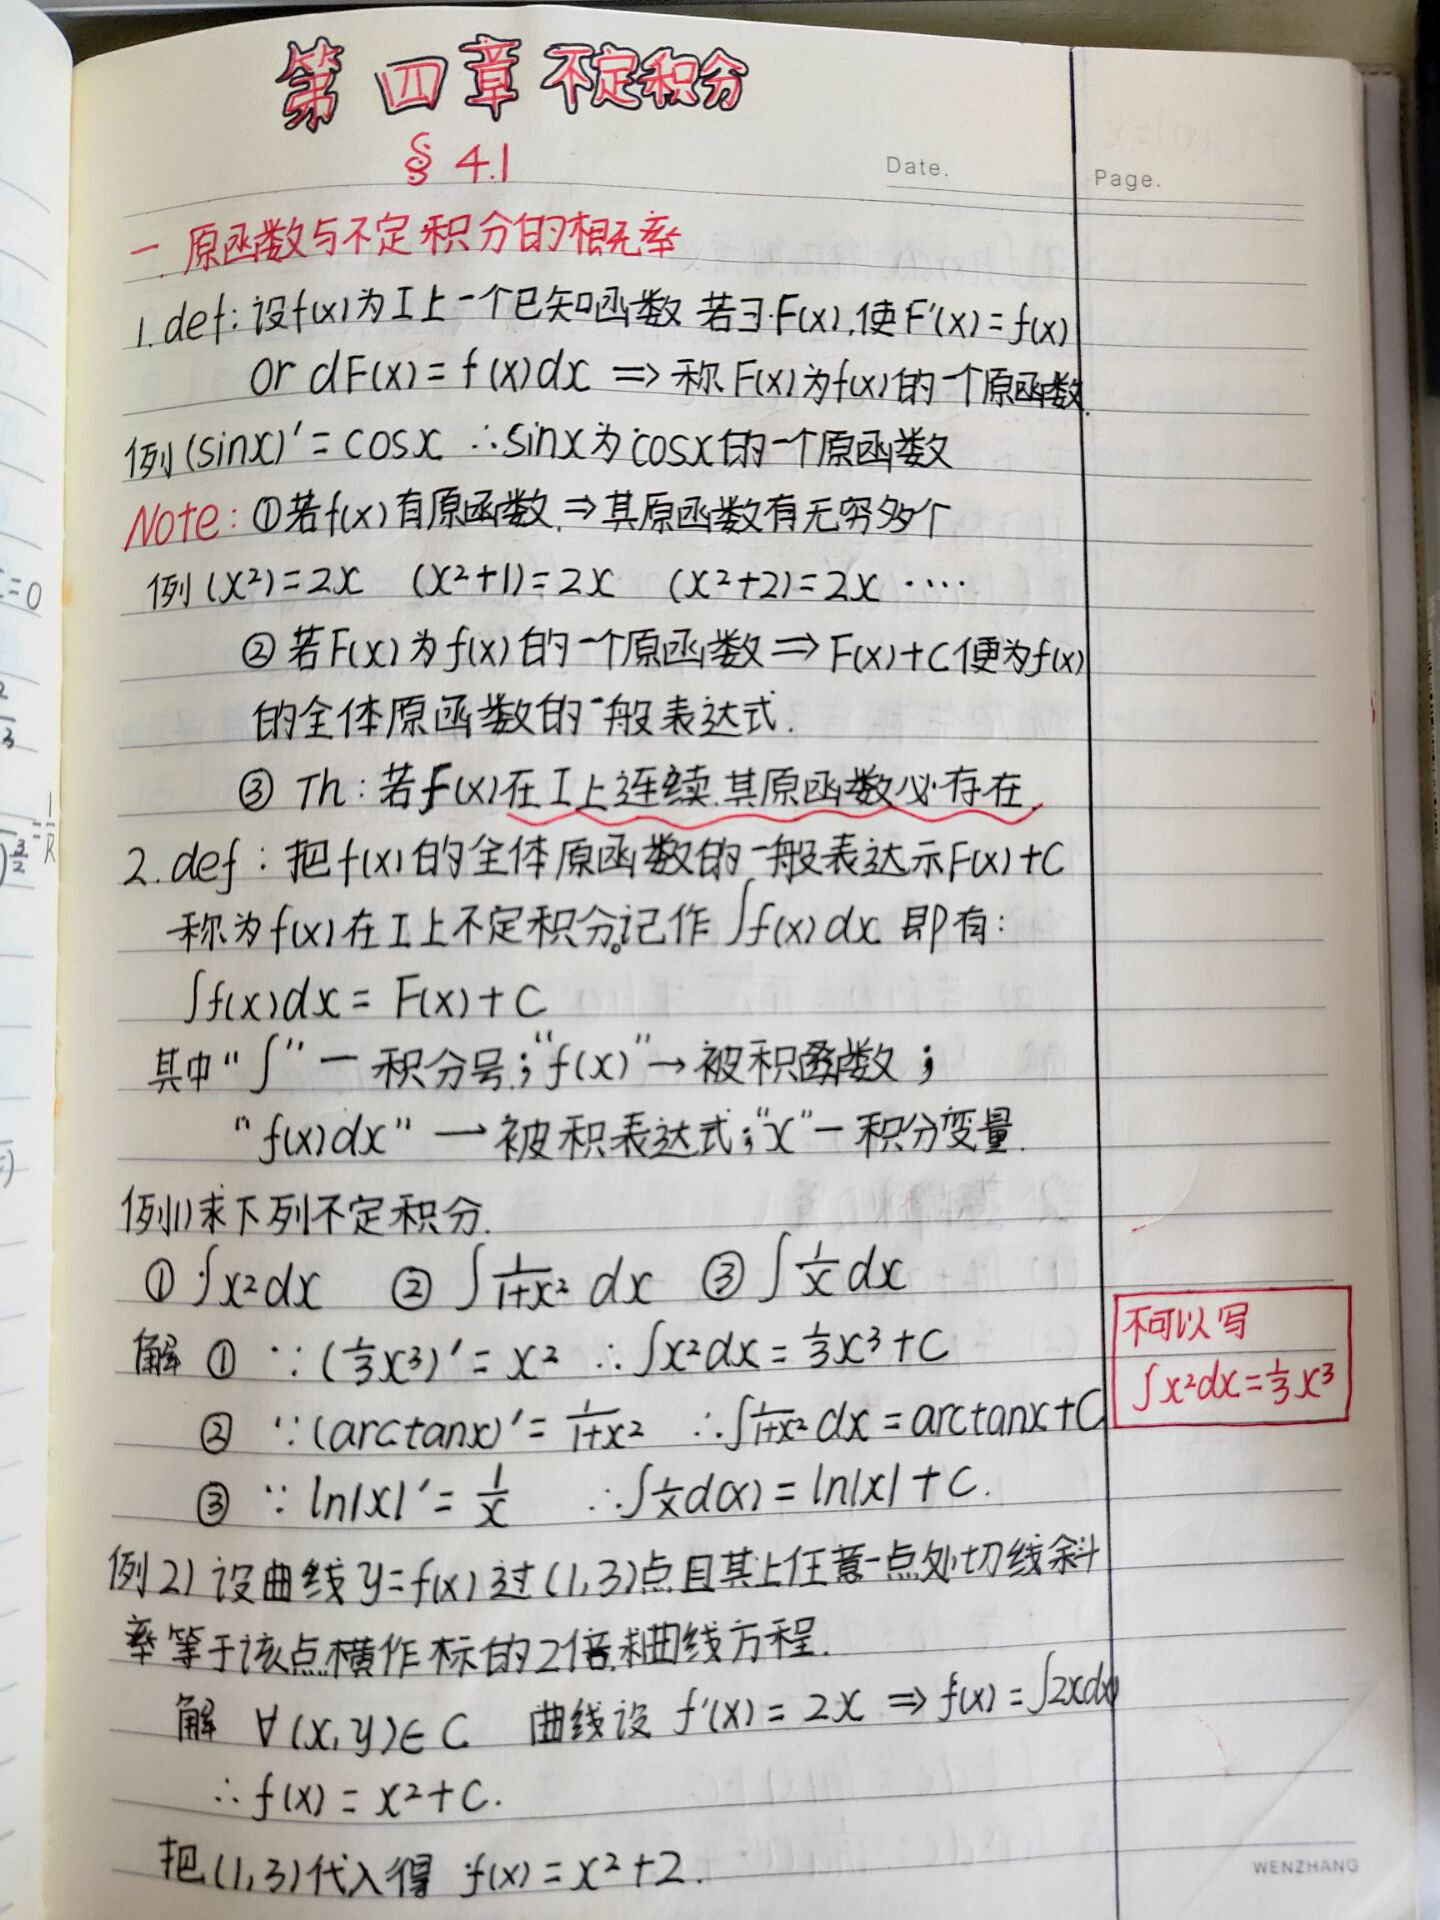 第四章 不定积分
§ 4.1
Date.
Page.
一. 原函数与不定积分的概率
1. def: 设f(x)为I上一个已知函数 若∃F(x),使F'(x)=f(x)
or dF(x)=f(x)dx ⇒ 称F(x)为f(x)的一个原函数.
例 (sinx)'=cosx ∴sinx为cosx的一个原函数
Note: ①若f(x)有原函数 ⇒ 其原函数有无穷多个
例 (x²)=2x (x²+1)=2x (x²+2)=2x ····
②若F(x)为f(x)的一个原函数 ⇒ F(x)+C便为f(x)
的全体原函数的一般表达式.
③ Th: 若f(x)在I上连续.其原函数必存在.
2. def: 把f(x)的全体原函数的一般表达示F(x)+C
称为f(x)在I上不定积分。记作∫f(x)dx 即有:
∫f(x)dx = F(x)+C
其中“∫”—积分号;“f(x)”→被积函数;
“f(x)dx”—被积表达式;“x”—积分变量.
例1)求下列不定积分.
① ∫x²dx ② ∫1/(1+x²) dx ③ ∫1/x dx
解 ① ∵(1/3x³)'=x² ∴∫x²dx=1/3x³+C
不可以写
∫x²dx=1/3x³
② ∵(arctanx)'=1/(1+x²) ∴∫1/(1+x²)dx=arctanx+C
③ ∵ln|x|'=1/x ∴∫1/x d(x)=ln|x|+C.
例2) 设曲线y=f(x)过(1,3)点且其上任意一点处切线斜
率等于该点横作标的2倍,求曲线方程.
解 ∀(x,y)∈C 曲线设 f'(x)=2x ⇒ f(x)=∫2xdx
∴f(x)=x²+C.
把(1,3)代入得 f(x)=x²+2.
WENZHANG
=0
2
3
3/2
=1/R